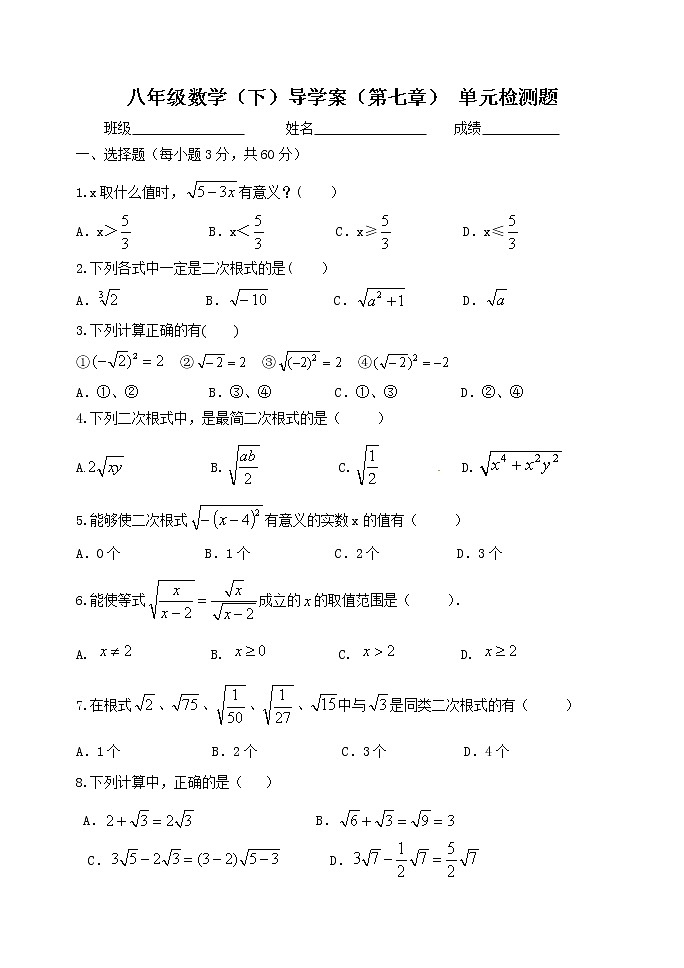 八年级数学（下）导学案（第七章） 单元检测题
班级________________ 姓名________________ 成绩___________
一、选择题（每小题3分，共60分）
1.x取什么值时，√(5－3x)有意义？( )
A．x＞5/3 B．x＜5/3 C．x≥5/3 D．x≤5/3
2.下列各式中一定是二次根式的是( )
A．∛2 B．√(－10) C．√(a²＋1) D．√a
3.下列计算正确的有( )
①(－√2)²＝2 ②√－2＝2 ③√(－2)²＝2 ④(√－2)²＝－2
A．①、② B．③、④ C．①、③ D．②、④
4.下列二次根式中，是最简二次根式的是（ ）
A.2√xy B.√(ab/2) C.√(1/2) D.√(x⁴＋x²y²)
5.能够使二次根式√(－(x－4)²)有意义的实数x的值有（ ）
A．0个 B．1个 C．2个 D．3个
6.能使等式√(x/(x－2))＝√x/√(x－2)成立的x的取值范围是（ ）.
A. x≠2 B. x≥0 C. x＞2 D. x≥2
7.在根式√2、√75、√(1/50)、√(1/27)、√15中与√3是同类二次根式的有（ ）
A．1个 B．2个 C．3个 D．4个
8.下列计算中，正确的是（ ）
A．2＋√3＝2√3 B．√6＋√3＝√9＝3
C．3√5－2√3＝(3－2)√(5－3) D．3√7－1/2√7＝5/2√7